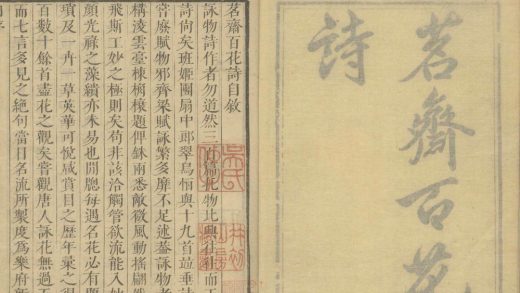 茗齋百花
詩
茗齋百花詩自敘
詠物詩作者勿道然三百篇物比興往往而
詩尙矣班姬團扇中郎翠鳥恒與十九首並垂詩
賦物邪齊梁賦詠繁多靡不足述蓋詠物者
構淩雲臺棟桷榱題俾銖兩悉敵微風動搖翩然
飛斯工妙之極則矣苟非該洽觸管欲流能入妙
顏光祿之藻繢亦未易也閒牕每遇名花必有題
瑣及一卉一草英華可悅咸賞目之歷年彙之得
百數十餘首盡花之觀矣嘗觀唐人詠花無過五
而七言多見之絕句當日名流所製度爲樂府新